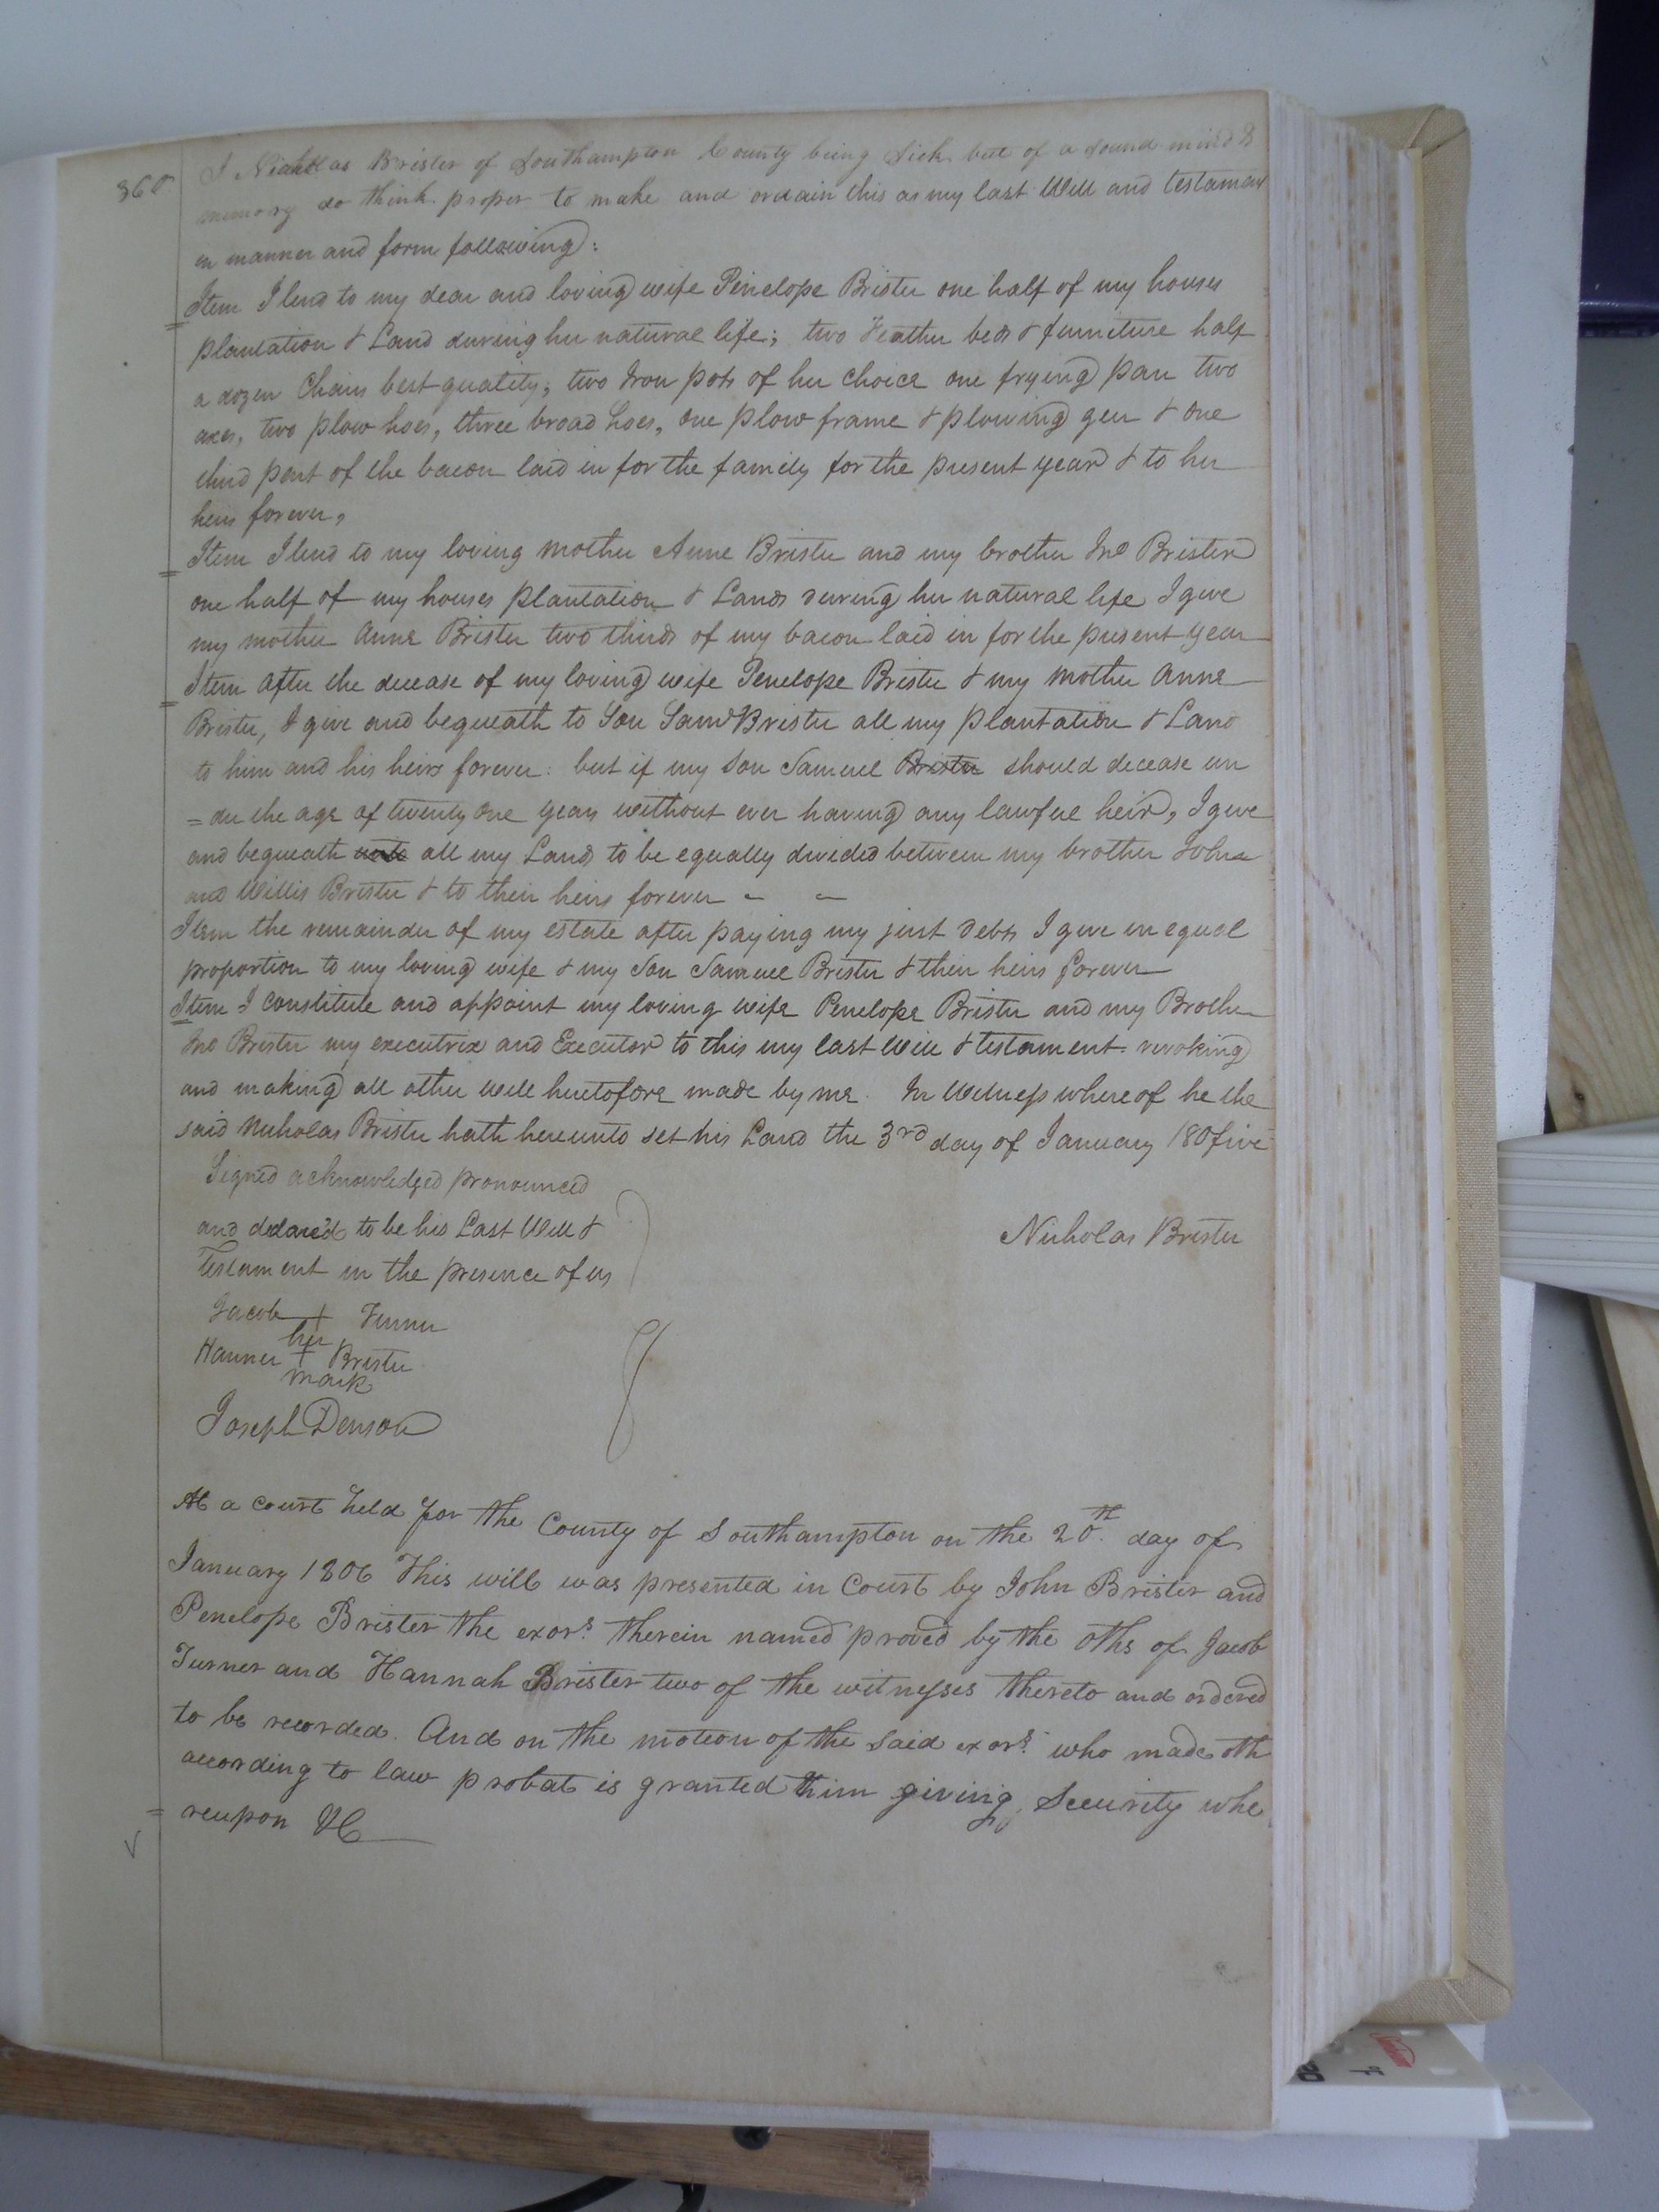 360
I Nicholas Brister of Southampton County being sick but of a sound mind &
memory do think proper to make and ordain this as my last Will and testament
in manner and form following:
Item I lend to my dear and loving wife Penelope Brister one half of my houses
plantation & Land during her natural life; two Feather beds & furniture half
a dozen Chairs best quality; two Iron pots of her choice one frying pan two
axes, two plow hoes, three broad hoes, one plow frame & plowing geer & one
third part of the bacon laid in for the family for the present year & to her
heirs forever,
Item I lend to my loving mother Anne Brister and my brother Jno Brister
one half of my houses plantation & Lands during her natural life I give
my mother Anne Brister two thirds of my bacon laid in for the present year
Item after the decease of my loving wife Penelope Brister & my mother Anne
Brister, I give and bequeath to Son Saml Brister all my plantation & Land
to him and his heirs forever: but if my son Samuel Brister should decease un
=der the age of twenty one years without ever having any lawful heir, I give
and bequeath unto all my Lands to be equally divided between my brother John
and Willis Brister & to their heirs forever - -
Item the remainder of my estate after paying my just debts I give in equal
proportion to my loving wife & my Son Samuel Brister & their heirs forever
Item I constitute and appoint my loving wife Penelope Brister and my Brother
Jno Brister my executrix and Executor to this my last Will & testament revoking
and making all other will heretofore made by me. In Witness whereof he the
said Nicholas Brister hath hereunto set his Land the 3rd day of January 180five
Signed acknowledged pronounced
and declared to be his Last Will &
Testament in the presence of us
Nicholas Brister
Jacob + Turner
her
Hanner + Brister
mark
Joseph Denson
At a court held for the County of Southampton on the 20th. day of
January 1806 This will was presented in Court by John Brister and
Penelope Brister the exors. therein named proved by the oths of Jacob
Turner and Hannah Brister two of the witnesses thereto and ordered
to be recorded. And on the motion of the said exors. who made oth
according to law probat is granted him giving Security whe
=reupon &C